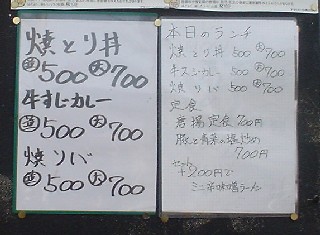 焼とり丼
並500 大700
牛すじカレー
並500 大700
焼ソバ
並500 大700
本日のランチ
焼とり丼 500 大700
牛スジカレー 500 大700
焼ソバ 500 大700
定食
唐揚定食 700円
豚と青菜の塩炒め
700円
セット
+200円で
ミニ味噌ラーメン